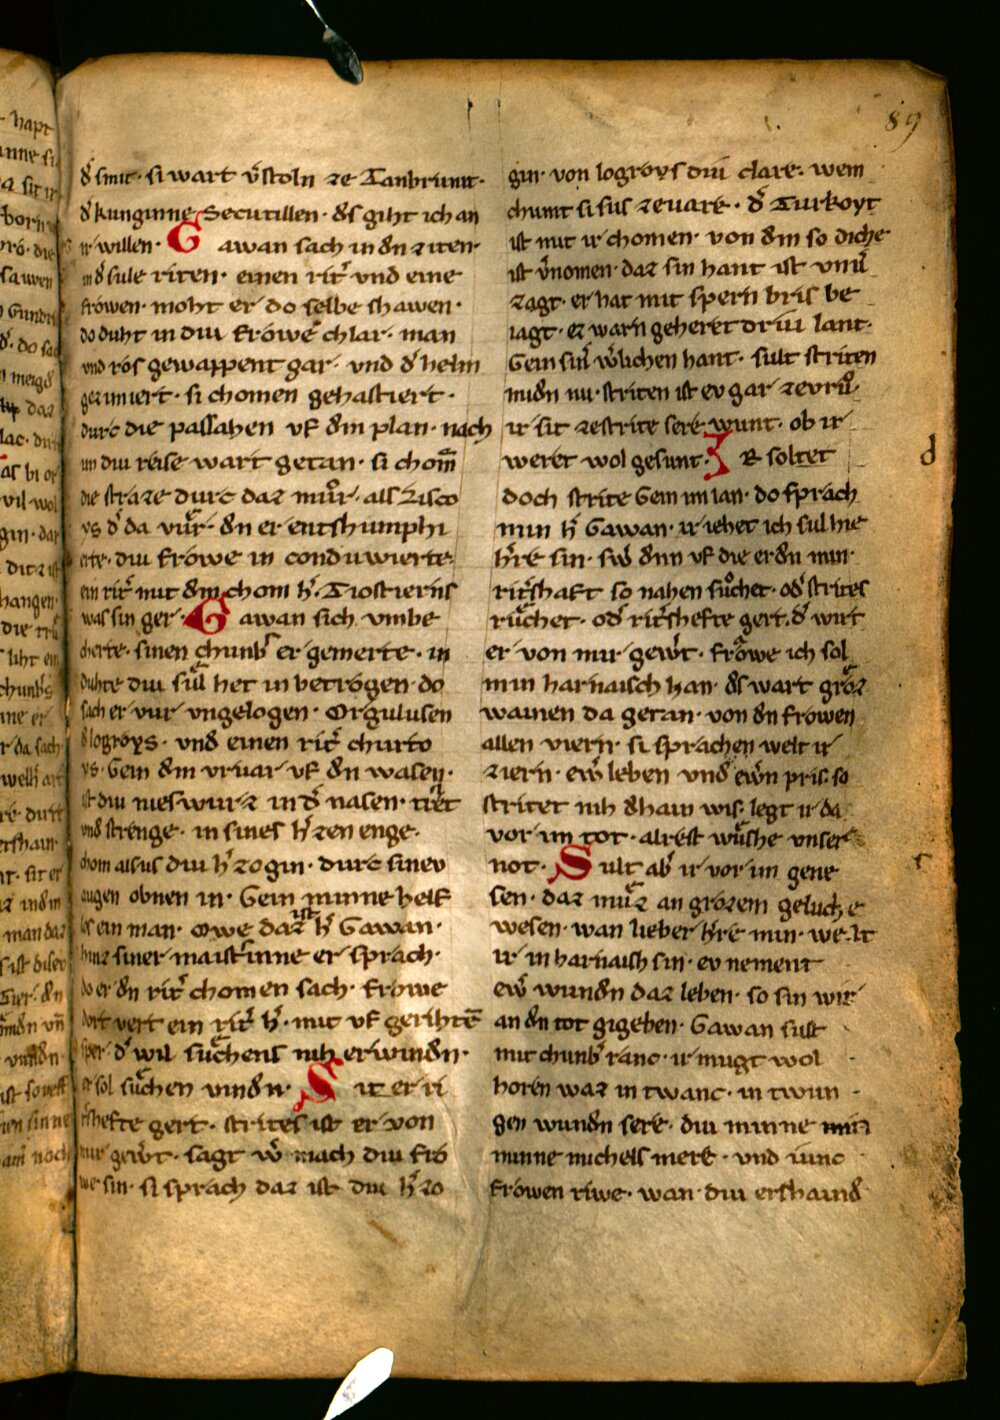 89
d̕ smit · si wart v̕stoln ze Tanbrunit·
d̕ kunginne Secutillen · d̕s giht ich an
ir willen · Gawan sach in d̕n ziten·
in d̕ sule riten · einen rit̕ vnd eine
frowen · moht er do selbe shawen ·
do duht in diu frowe chlar · man
vnd ros gewappent gar · vnd d̕ helm
gezimiert · si chomen gehastiert ·
durc die passahen vf d̕m plan · nach
im diu reise wart getan · si chom̄
die straze durc daz muͦr · als Lisco
ys d̕ da vuͦr · d̕n er entshumphi
erte · diu frowe in conduwierte
ein rit̕ mit d̕m chom h̕ · Tiostierns
was sin ger · Gawan sich vmbe
cherte · sinen chunb̕ er gemerte · in
duhte diu suͦl het in betrogen · do
sach er vur vngelogen · Orgulusen
d̕ logroys · vnd einen rit̕ churto
ys · Gein d̕m vruar vf d̕n wasen ·
ist diu nieswurz in d̕ nasen · tiͤr
vnd strenge · in sines h̕zen enge ·
chom alsus diu h̕zogin · durc sinev
augen obnen in · Gein minne helf
los ein man · owe daz ist h̕ Gawan ·
hinz siner maist̕inne er sprach ·
do er d̕n rit̕ chomen sach · frowe
dort vert ein rit̕ h̕ · mit vf gerihtē
sper · d̕ wil suͦchens niht erwind̕n ·
er sol suͦchen vind̕n · Sit er ri
t̕shefte gert · strites ist er von
mir gew̕t · sagt w̕ mach diu fro
we sin · si sprach daz ist diu h̕zo
gin · von logroys diu clare · wem
chumt si sus zevare · d̕ Turkoyt
ist mit ir chomen · von d̕m so diche
ist v̕nomen · daz sin hant ist vnv̕
zagt · er hat mit spern bris be
iagt · ez warn geheret driu lant ·
Gein sin̕ w̕lichen hant · sult striten
mid̕n nu · striten ist ev gar zevruͦ ·
ir sit zestrite sere wunt · ob ir
weret wol gesunt · IR soltet
doch strite Gein im lan · do sprach
min h̕ Gawan · ir iehet ich sul hie
h̕re sin · sw̕ d̕nn vf die erd̕n min ·
rit̕shaft so nahen suͦchet · od̕ strites
ruͦchet · od̕ rit̕shefte gert · d̕ wirt
er von mir gew̕t · frowe ich sol
min harnaisch han · d̕s wart groz
wainen da getan · von d̕n frowen
allen viern · si sprachen welt ir
ziern · ew̕ leben vnd ew̕n pris · so
stritet niht d̕hain wis · legt ir da
vor im tot · alrest wuͦshe vnser
not · Sult ab̕ ir vor im gene
sen · daz muͦz an grozem geluche
wesen · wan lieber h̕re min · welt
ir in harnaish sin · ev nement
ew̕ wund̕n daz leben · so sin wir
an d̕n tot gigeben · Gawan sust
mit chunb̕ ranc · ir mugt wol
horen waz in twanc · in twun
gen wund̕n sere · diu minne
minne michels mere · vnd iunc
frowen riwe · wan diu ershaind̕